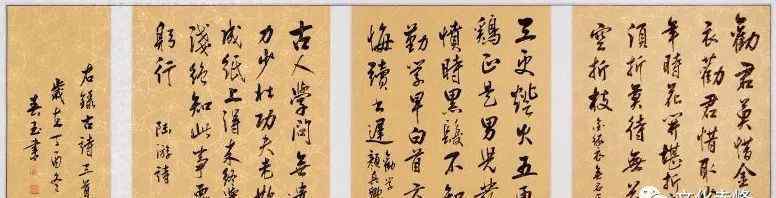 勸君莫惜金
衣勸君惜取少
年時花開堪折
須折莫待無花
空折枝 金縷衣 無名氏
三更燈火五更
雞正是男兒發
憤時黑髮不知
勤學早白首方
悔讀書遲 勸學 顏真卿
古人學問無遺
力少壯功夫老始
成紙上得來終覺
淺絕知此事要
躬行 陸游詩
右錄古詩三首
歲在丁酉冬
春玉書